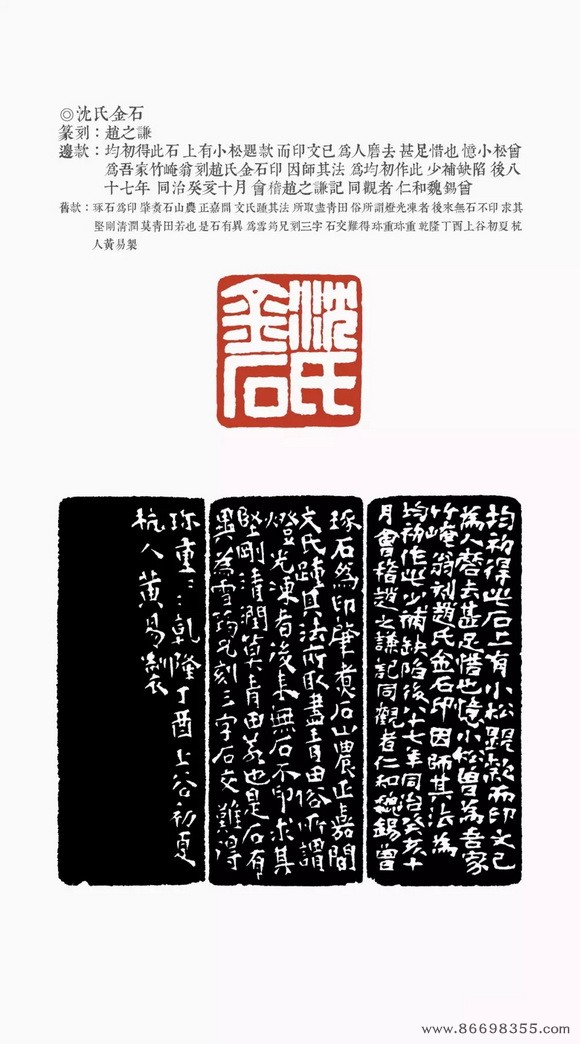 ◎沈氏金石
篆刻：趙之謙
邊款：均初得此石 上有小松題款 而印文已為人磨去 甚足惜也 憶小松曾
為吾家竹崦翁刻趙氏金石印 因師其法 為均初作此 少補缺陷 後八
十七年 同治癸亥十月 會稽趙之謙記 同觀者 仁和魏錫曾
舊款：琢石為印 肇煑石山農 正嘉間 文氏踵其法 所取盡青田 俗所謂燈光凍者 後來無石不印 求其
堅剛清潤 莫青田若也 是石有異 為雪筠兄刻三字 石交難得 珎重珎重 乾隆丁酉上谷初夏 杭
人黃易製
沈氏
金石
均初得此石上有小松題款而印文已
為人磨去甚足惜也憶小松曾為吾家
竹崦翁刻趙氏金石印因師其法為
均初作此少補缺陷後八十七年同治癸亥十
月會稽趙之謙記同觀者仁和魏錫曾
琢石為印肇煑石山農正嘉間
文氏踵其法所取盡青田俗所謂
燈光凍者後來無石不印求其
堅剛清潤莫青田若也是石有
異為雪筠兄刻三字石交難得
珎重〻〻乾隆丁酉上谷初夏
杭人黃易製
www.86698355.com